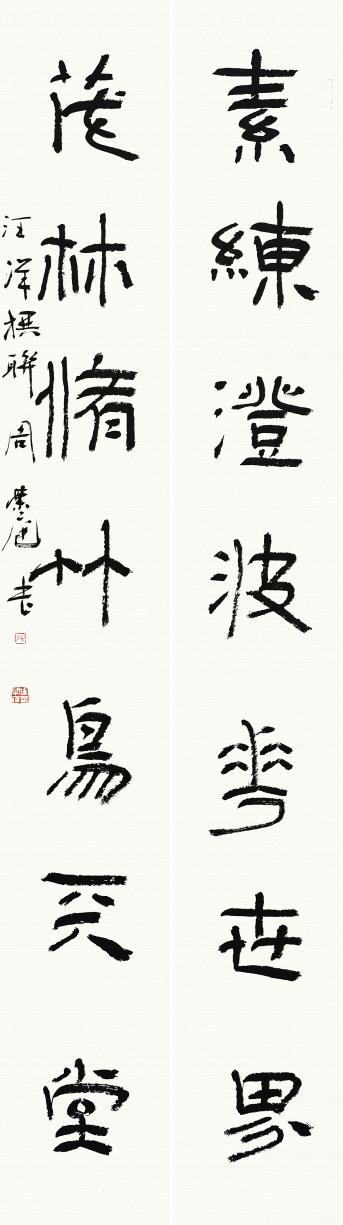 素練澄波華世界
茂林脩竹鳥天堂
汪洋撰聯 周
書